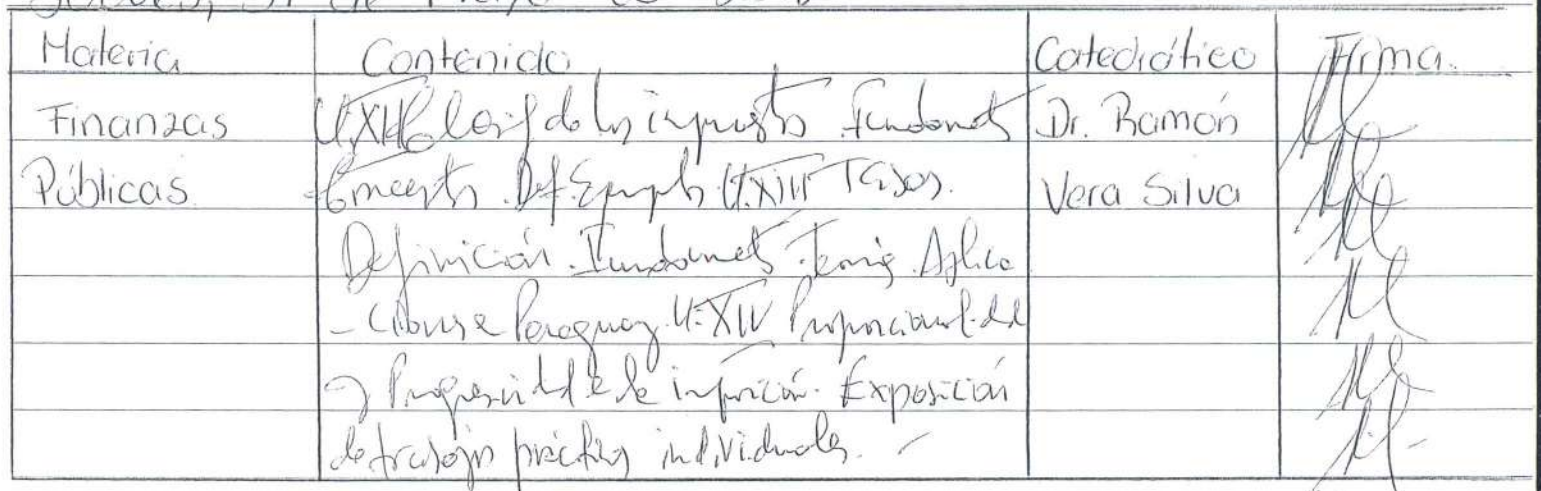 Jueves, 31 de Mayo
Materia Contenido Catedrático Firma
Finanzas U.XIII de los impuestos Fundament Dr. Ramón
Públicas Concepto. Def. Ejemplo U.XIII Tasas. Vera Silva
Definición. Fundament Teoría Aplica
- ciones e Paraguay. U.XIV Proporcionalidad
y Progresividad e la imposición. Exposición
de trabajos prácticos individuales. -